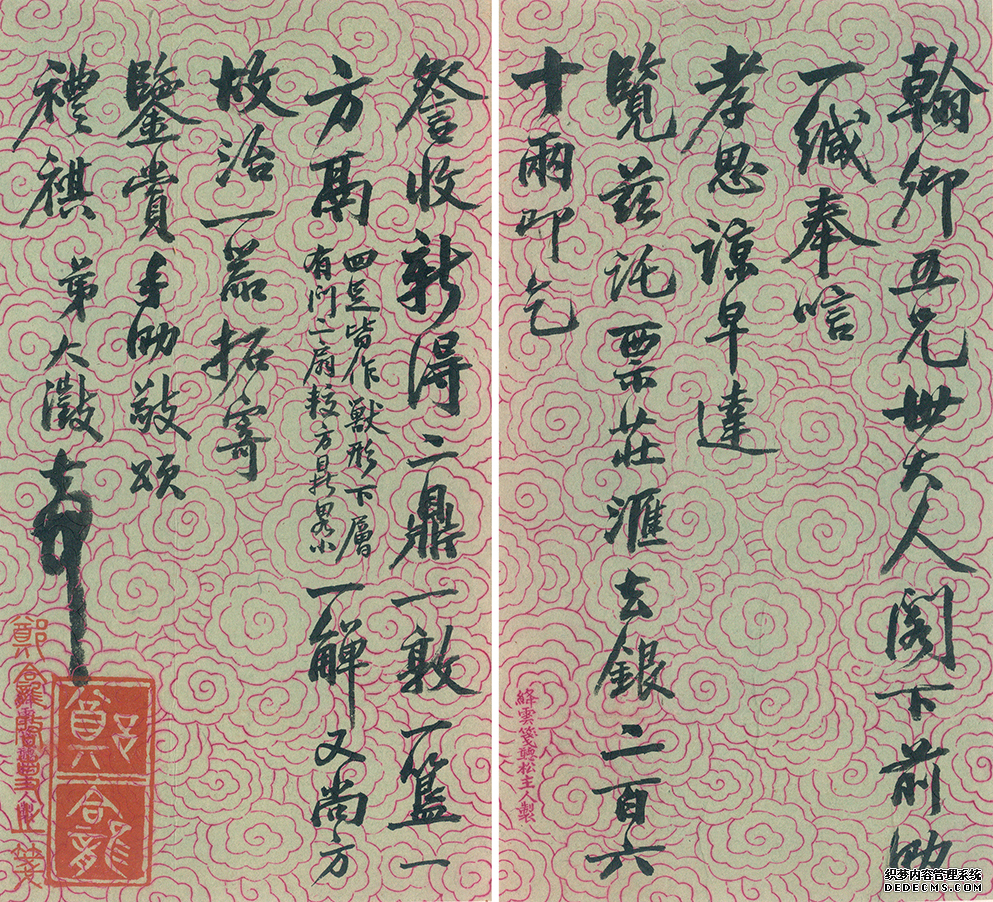 翰卿五兄世大人閣下前泐
一緘奉唁
孝思諒早達
覽茲託票莊滙去銀二百六
十兩即乞
絳雲箋聽松主人製
詧收新得二鼎一敦一簠一
方鬲
四足皆作獸形下層
有門一扇較方鼎畧小
一觶又尚方
故治一器拓寄
鑒賞手泐敬頌
禮祺 弟大澂
织梦内容管理系统
DEDECMS.COM